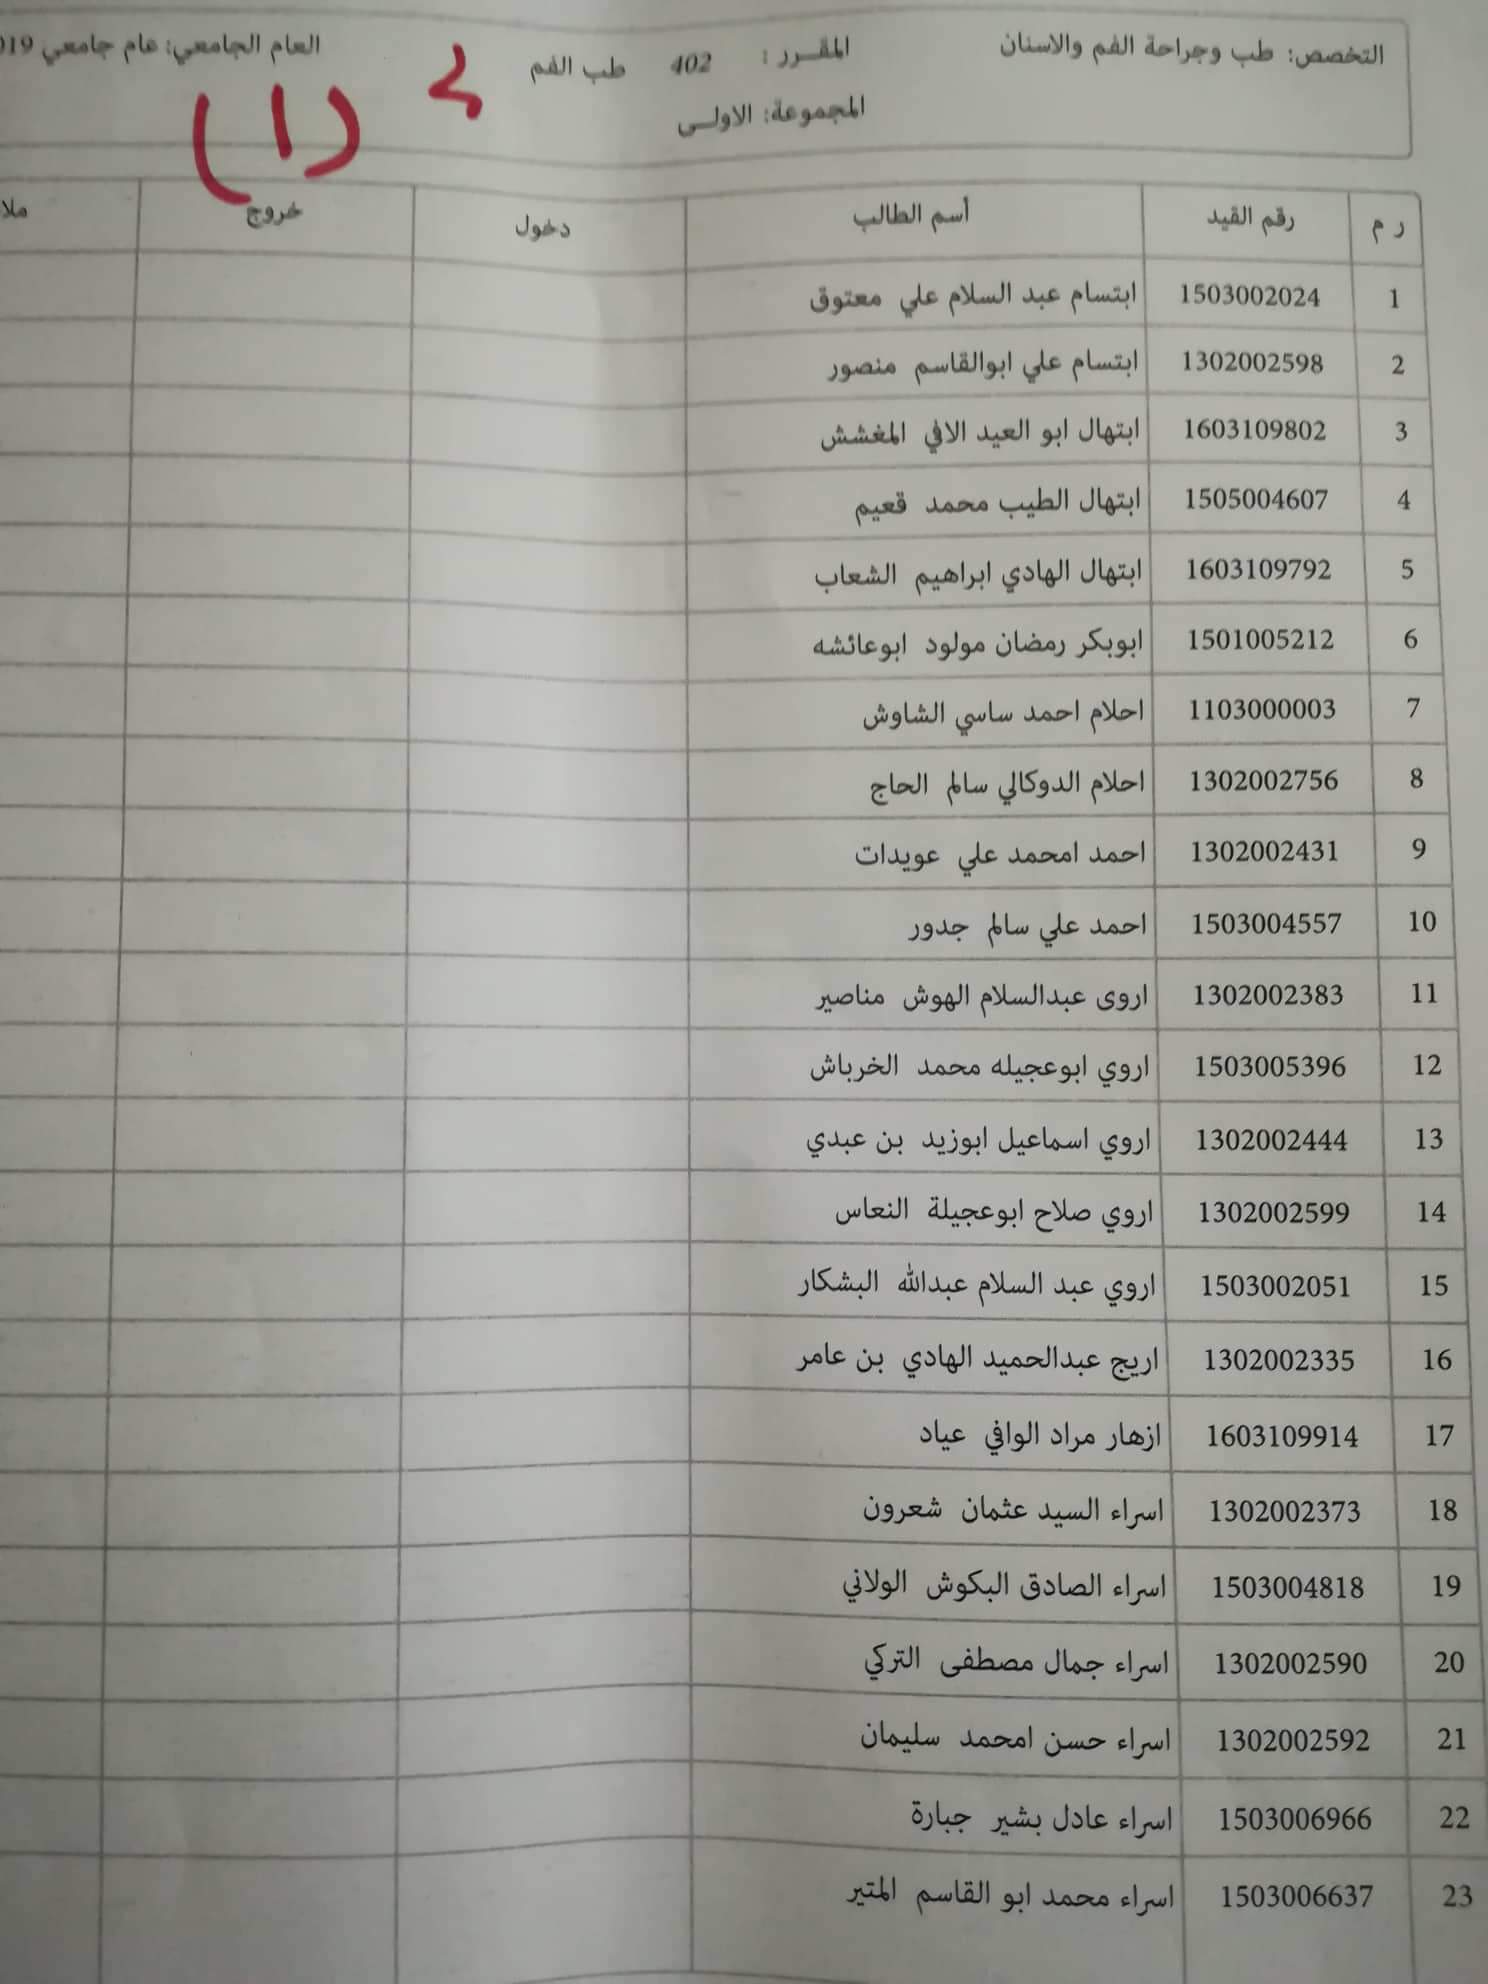 التخصص: طب وجراحة الفم والاسنان المقـرر : 402 طب الفم العام الجامعي: عام جامعي 019
المجموعة: الاولـى
(١)
ر م رقم القيد أسم الطالب دخول خروج ملا
1 1503002024 ابتسام عبد السلام علي معتوق
2 1302002598 ابتسام علي ابوالقاسم منصور
3 1603109802 ابتهال ابو العيد الافي المغشش
4 1505004607 ابتهال الطيب محمد قعيم
5 1603109792 ابتهال الهادي ابراهيم الشعاب
6 1501005212 ابوبكر رمضان مولود ابوعائشه
7 1103000003 احلام احمد ساسي الشاوش
8 1302002756 احلام الدوكالي سالم الحاج
9 1302002431 احمد امحمد علي عويدات
10 1503004557 احمد علي سالم جدور
11 1302002383 اروى عبدالسلام الهوش مناصير
12 1503005396 اروي ابوعجيله محمد الخرباش
13 1302002444 اروي اسماعيل ابوزيد بن عبدي
14 1302002599 اروي صلاح ابوعجيلة النعاس
15 1503002051 اروي عبد السلام عبدالله البشكار
16 1302002335 اريج عبدالحميد الهادي بن عامر
17 1603109914 ازهار مراد الوافي عياد
18 1302002373 اسراء السيد عثمان شعرون
19 1503004818 اسراء الصادق البكوش الولاني
20 1302002590 اسراء جمال مصطفى التركي
21 1302002592 اسراء حسن امحمد سليمان
22 1503006966 اسراء عادل بشير جبارة
23 1503006637 اسراء محمد ابو القاسم المتير